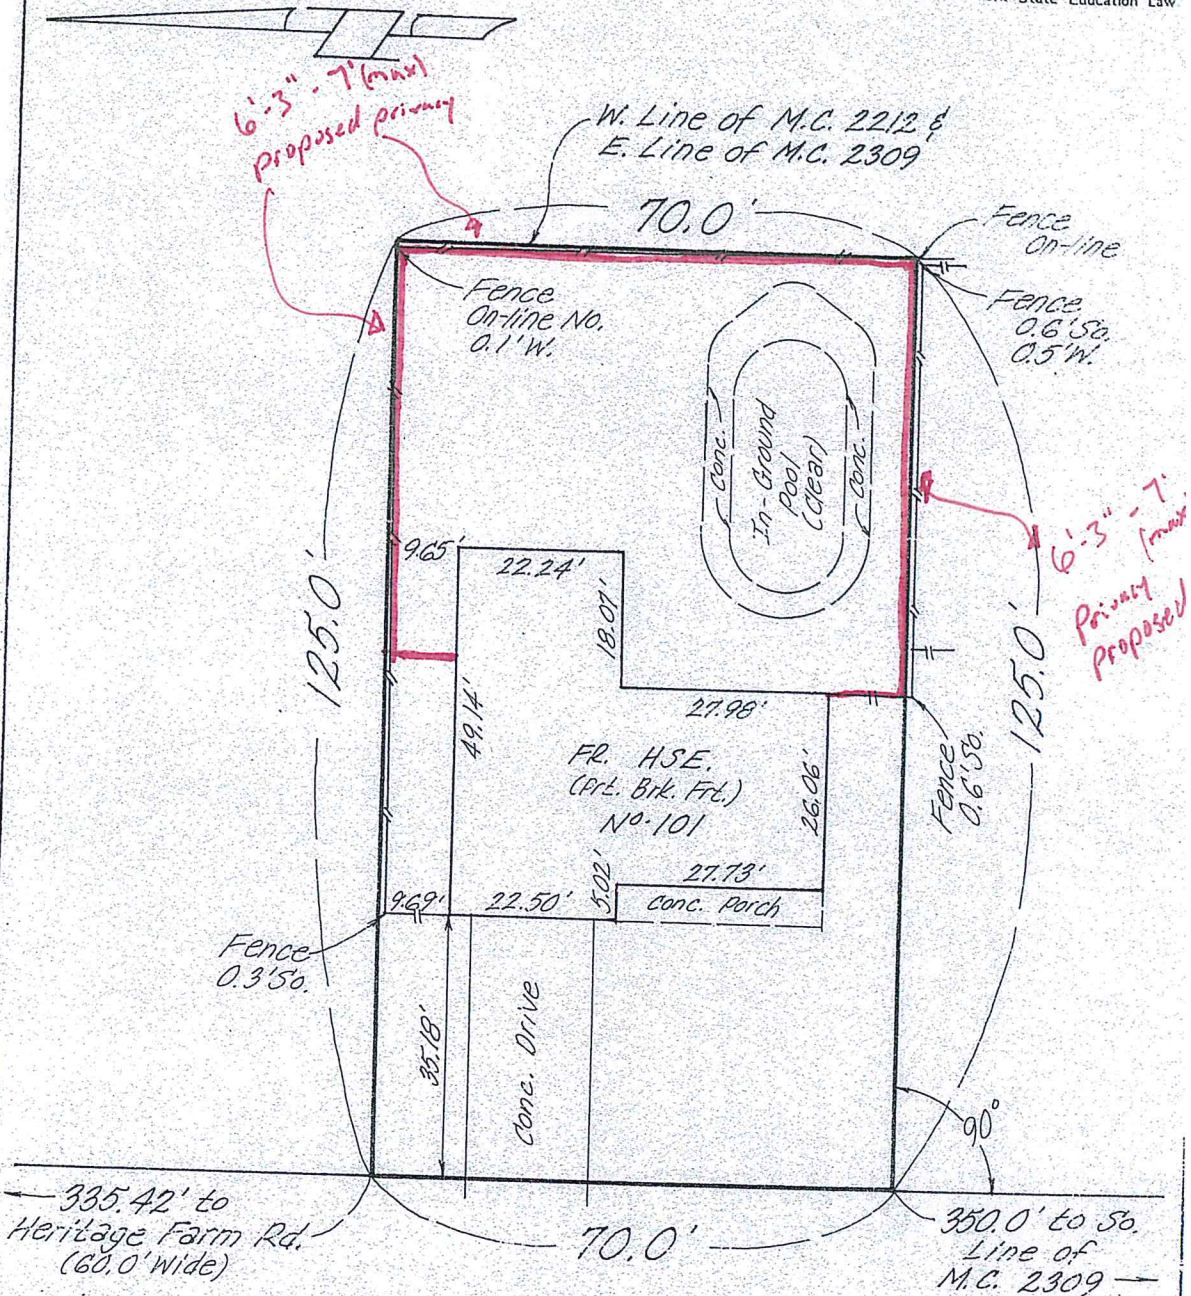 State Education Law
6'-3" - 7' (max)
proposed privacy
W. Line of M.C. 2212 &
E. Line of M.C. 2309
70.0'
Fence
On-line
Fence
On-line No.
0.1'W.
Fence
0.6'So.
0.5'W.
Conc.
In-Ground
Pool
(Clear)
Conc.
6'-3" - 7'
(max)
Privacy
proposed
125.0'
9.65'
22.24'
18.07'
125.0'
49.14'
27.98'
FR. HSE.
(Prt. Brk. Frt.)
Nº 101
26.06'
Fence
0.6'So.
5.02'
27.73'
Conc. Porch
9.69'
22.50'
Fence
0.3'So.
35.18'
Conc. Drive
90°
335.42' to
Heritage Farm Rd.
(60.0' Wide)
70.0'
350.0' to So.
Line of
M.C. 2309